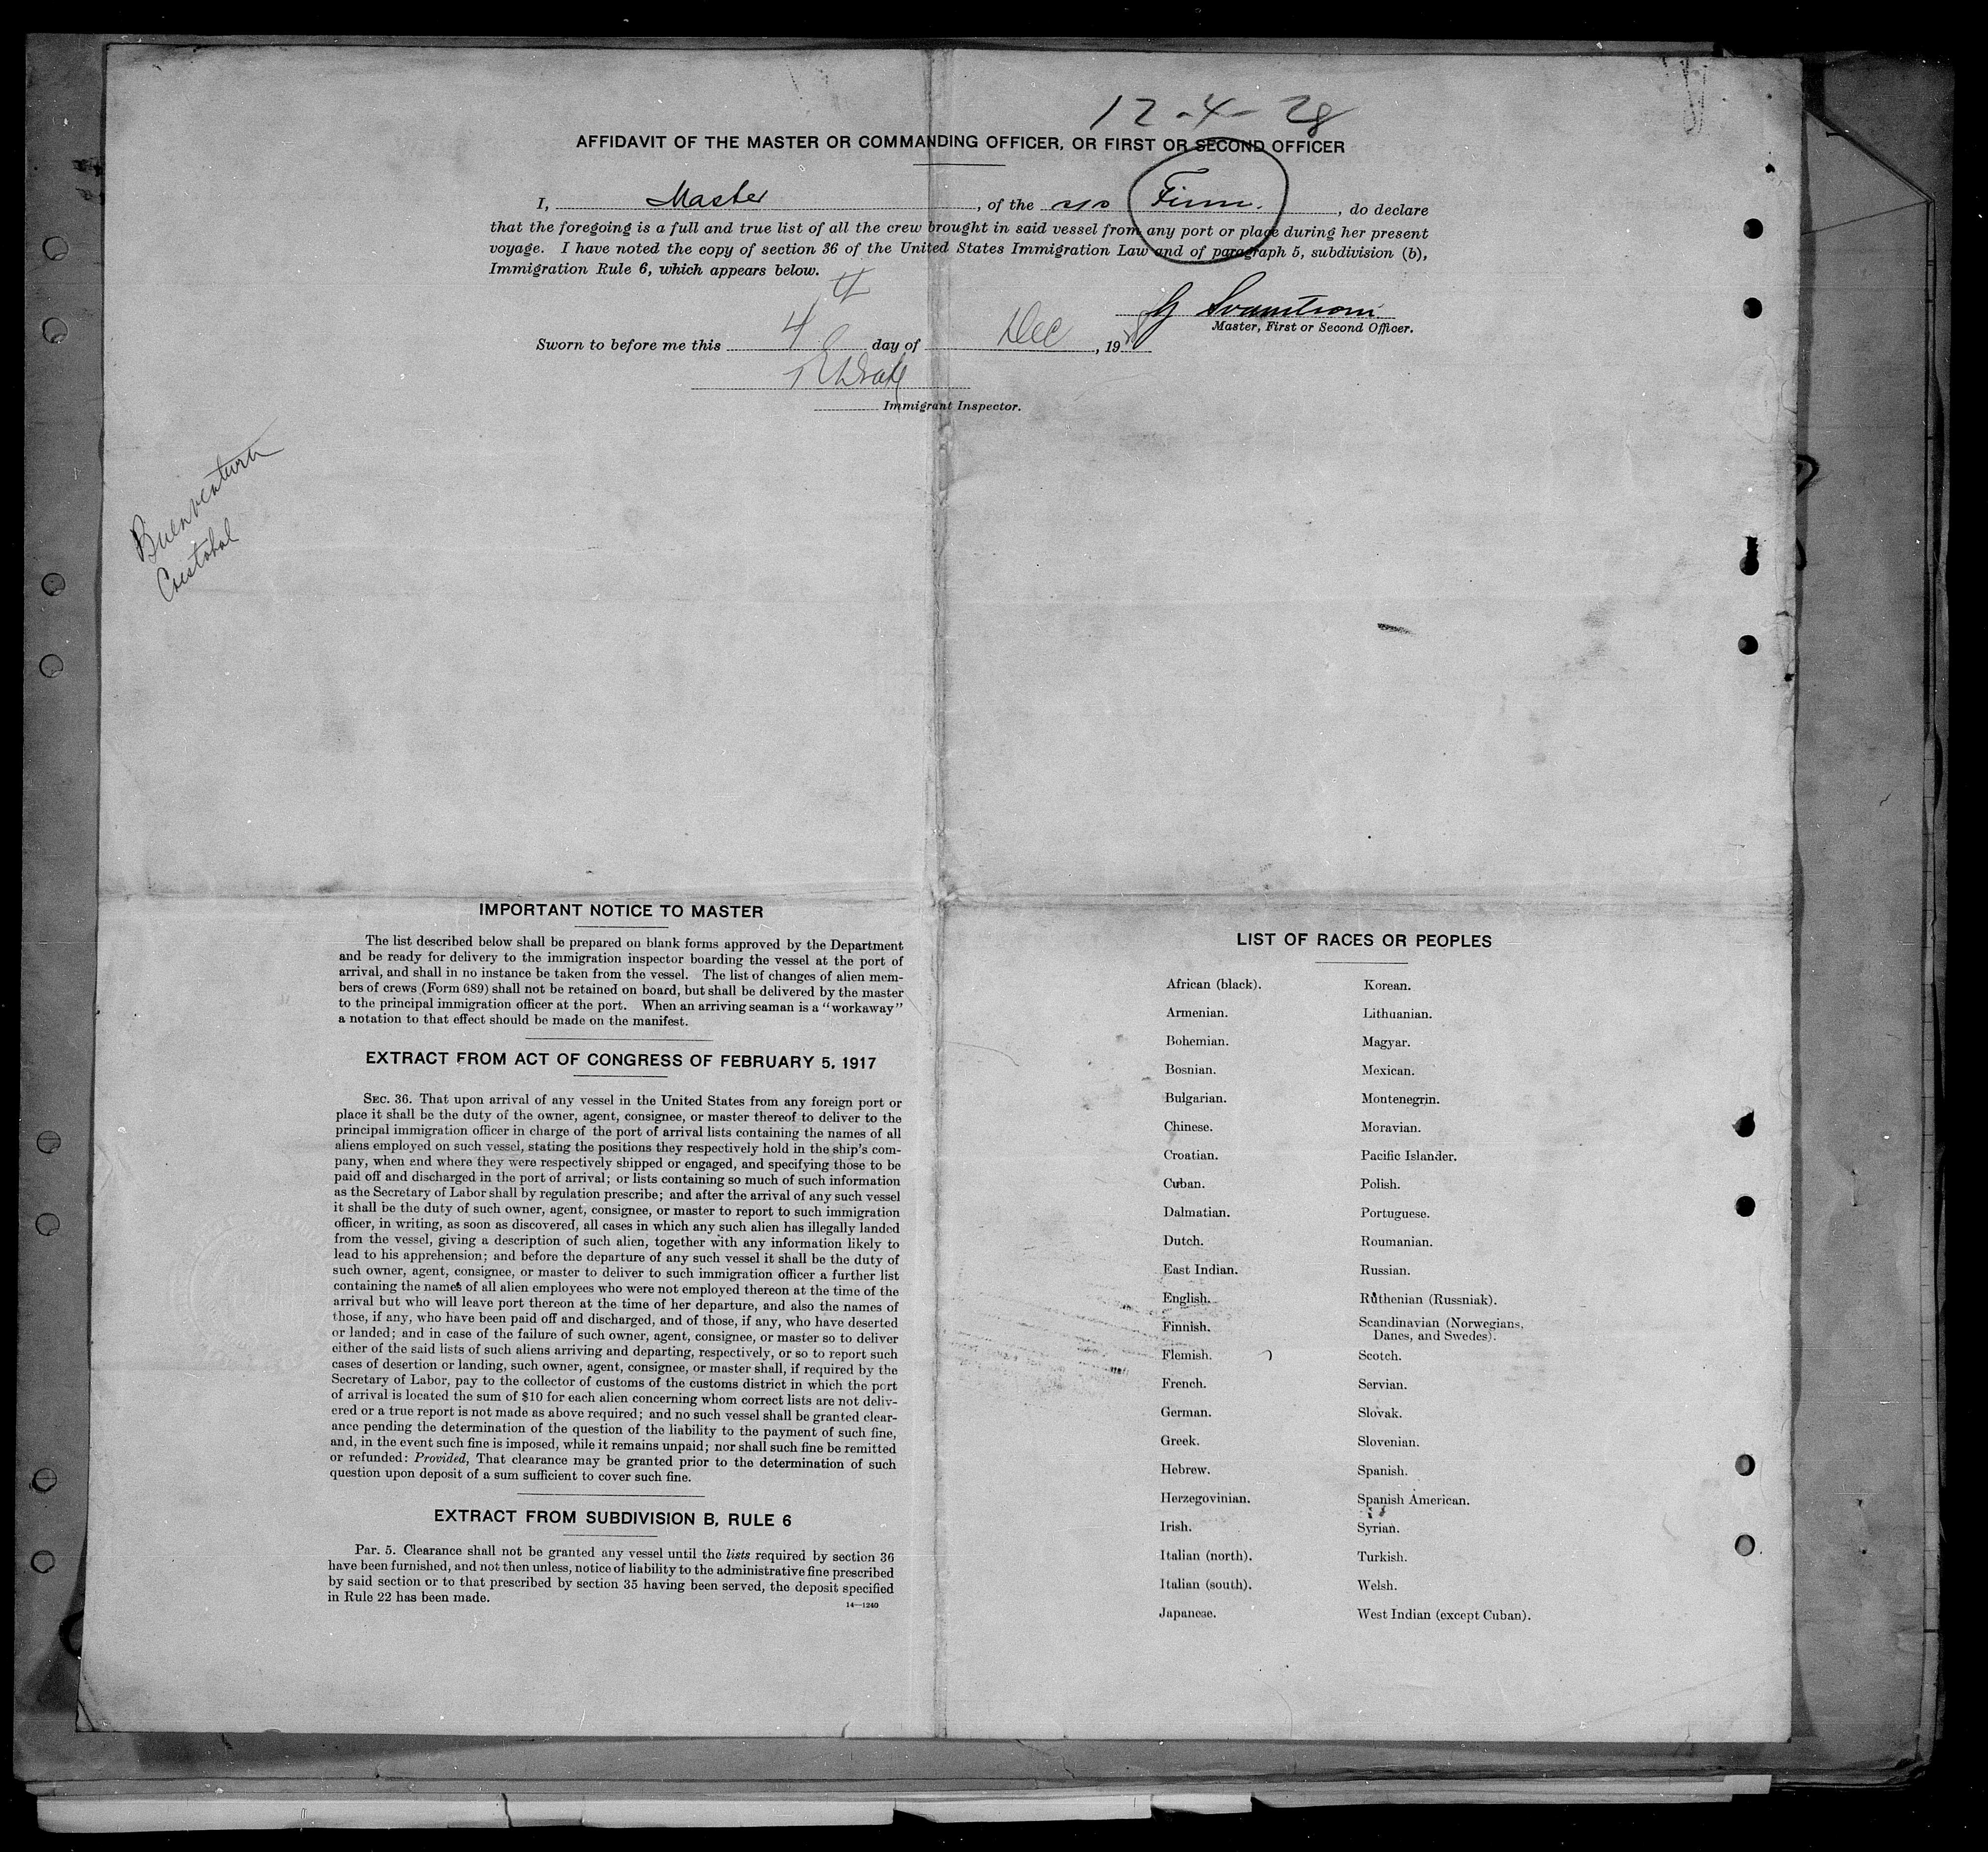 12-4-28
AFFIDAVIT OF THE MASTER OR COMMANDING OFFICER, OR FIRST OR SECOND OFFICER
I, Master, of the Finn., do declare
that the foregoing is a full and true list of all the crew brought in said vessel from any port or place during her present
voyage. I have noted the copy of section 36 of the United States Immigration Law and of paragraph 5, subdivision (b),
Immigration Rule 6, which appears below.
4
Master, First or Second Officer.
Sworn to before me this 4 day of Dec, 1928
Immigrant Inspector.
Buenventura
Cristobal
IMPORTANT NOTICE TO MASTER
The list described below shall be prepared on blank forms approved by the Department
and be ready for delivery to the immigration inspector boarding the vessel at the port of
arrival, and shall in no instance be taken from the vessel. The list of changes of alien mem-
bers of crews (Form 689) shall not be retained on board, but shall be delivered by the master
to the principal immigration officer at the port. When an arriving seaman is a "workaway"
a notation to that effect should be made on the manifest.
EXTRACT FROM ACT OF CONGRESS OF FEBRUARY 5, 1917
SEC. 36. That upon arrival of any vessel in the United States from any foreign port or
place it shall be the duty of the owner, agent, consignee, or master thereof to deliver to the
principal immigration officer in charge of the port of arrival lists containing the names of all
aliens employed on such vessel, stating the positions they respectively hold in the ship's com-
pany, when and where they were respectively shipped or engaged, and specifying those to be
paid off and discharged in the port of arrival; or lists containing so much of such information
as the Secretary of Labor shall by regulation prescribe; and after the arrival of any such vessel
it shall be the duty of such owner, agent, consignee, or master to report to such immigration
officer, in writing, as soon as discovered, all cases in which any such alien has illegally landed
from the vessel, giving a description of such alien, together with any information likely to
lead to his apprehension; and before the departure of any such vessel it shall be the duty of
such owner, agent, consignee, or master to deliver to such immigration officer a further list
containing the names of all alien employees who were not employed thereon at the time of the
arrival but who will leave port thereon at the time of her departure, and also the names of
those, if any, who have been paid off and discharged, and of those, if any, who have deserted
or landed; and in case of the failure of such owner, agent, consignee, or master so to deliver
either of the said lists of such aliens arriving and departing, respectively, or so to report such
cases of desertion or landing, such owner, agent, consignee, or master shall, if required by the
Secretary of Labor, pay to the collector of customs of the customs district in which the port
of arrival is located the sum of $10 for each alien concerning whom correct lists are not deliv-
ered or a true report is not made as above required; and no such vessel shall be granted clear-
ance pending the determination of the question of the liability to the payment of such fine,
and, in the event such fine is imposed, while it remains unpaid; nor shall such fine be remitted
or refunded: Provided, That clearance may be granted prior to the determination of such
question upon deposit of a sum sufficient to cover such fine.
EXTRACT FROM SUBDIVISION B, RULE 6
Par. 5. Clearance shall not be granted any vessel until the lists required by section 36
have been furnished, and not then unless, notice of liability to the administrative fine prescribed
by said section or to that prescribed by section 35 having been served, the deposit specified
in Rule 22 has been made.
14—1240
LIST OF RACES OR PEOPLES
African (black).
Armenian.
Bohemian.
Bosnian.
Bulgarian.
Chinese.
Croatian.
Cuban.
Dalmatian.
Dutch.
East Indian.
English.
Finnish.
Flemish.
French.
German.
Greek.
Hebrew.
Herzegovinian.
Irish.
Italian (north).
Italian (south).
Japanese.
Korean.
Lithuanian.
Magyar.
Mexican.
Montenegrin.
Moravian.
Pacific Islander.
Polish.
Portuguese.
Roumanian.
Russian.
Ruthenian (Russniak).
Scandinavian (Norwegians,
Danes, and Swedes).
Scotch.
Servian.
Slovak.
Slovenian.
Spanish.
Spanish American.
Syrian.
Turkish.
Welsh.
West Indian (except Cuban).